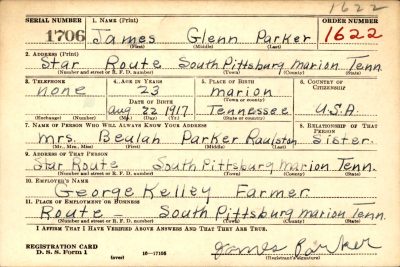 1622
SERIAL NUMBER 1. NAME (Print) ORDER NUMBER
1706 James Glenn Parker 1622
(First) (Middle) (Last)
2. ADDRESS (Print)
Star Route South Pittsburg Marion Tenn.
(Number and street or R. F. D. number) (Town) (County) (State)
3. TELEPHONE 4. AGE IN YEARS 5. PLACE OF BIRTH 6. COUNTRY OF CITIZENSHIP
none 23 Marion
DATE OF BIRTH (Town or county)
Aug. 22 1917 Tennessee U.S.A.
(Exchange) (Number) (Mo.) (Day) (Yr.) (State or country)
7. NAME OF PERSON WHO WILL ALWAYS KNOW YOUR ADDRESS 8. RELATIONSHIP OF THAT PERSON
Mrs. Beulah Parker Raulston Sister.
(Mr., Mrs., Miss) (First) (Middle) (Last)
9. ADDRESS OF THAT PERSON
Star Route South Pittsburg Marion Tenn.
(Number and street or R. F. D. number) (Town) (County) (State)
10. EMPLOYER'S NAME
George Kelley Farmer
11. PLACE OF EMPLOYMENT OR BUSINESS
Route - South Pittsburg Marion Tenn.
(Number and street or R. F. D. number) (Town) (County) (State)
I AFFIRM THAT I HAVE VERIFIED ABOVE ANSWERS AND THAT THEY ARE TRUE.
James Parker
REGISTRATION CARD
D. S. S. Form 1 (over) 16-17105 (Registrant's signature)